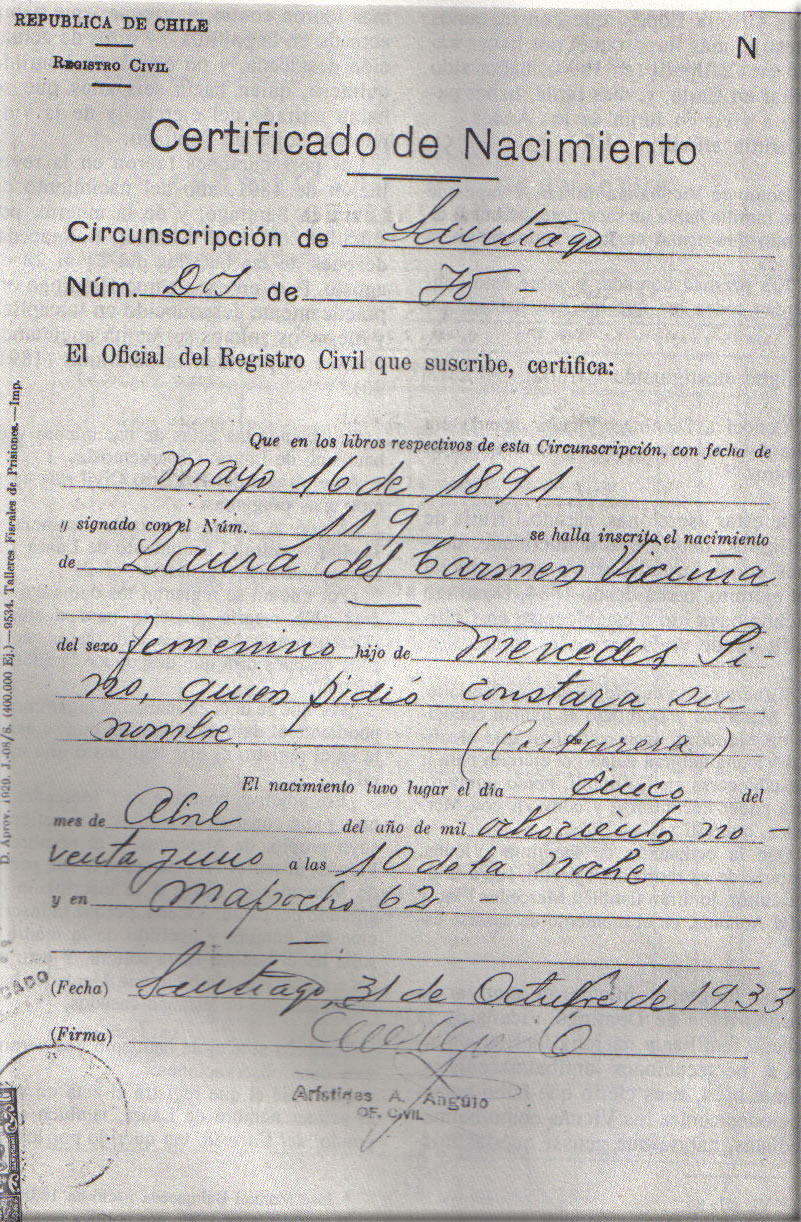 REPUBLICA DE CHILE
REGISTRO CIVIL
N
Certificado de Nacimiento
Circunscripción de Santiago
Núm. de 75
El Oficial del Registro Civil que suscribe, certifica:
Que en los libros respectivos de esta Circunscripción, con fecha de
Mayo 16 de 1891
y signado con el Núm. 119 se halla inscrito el nacimiento
de Laura del Carmen Vicuña
del sexo femenino hijo de Mercedes Pi-
no, quien pidió constara su
nombre. (Costurera)
El nacimiento tuvo lugar el día cinco del
mes de Abril del año de mil ochocientos no-
venta y uno a las 10 de la noche
y en Mapocho 62 -
(Fecha) Santiago, 31 de Octubre de 1933
(Firma)
Arístides A. Angulo
OF. CIVIL
D. Aprov. 1920. (400.000 Ej.)—9534. Talleres Fiscales de Prisiones.—Imp.